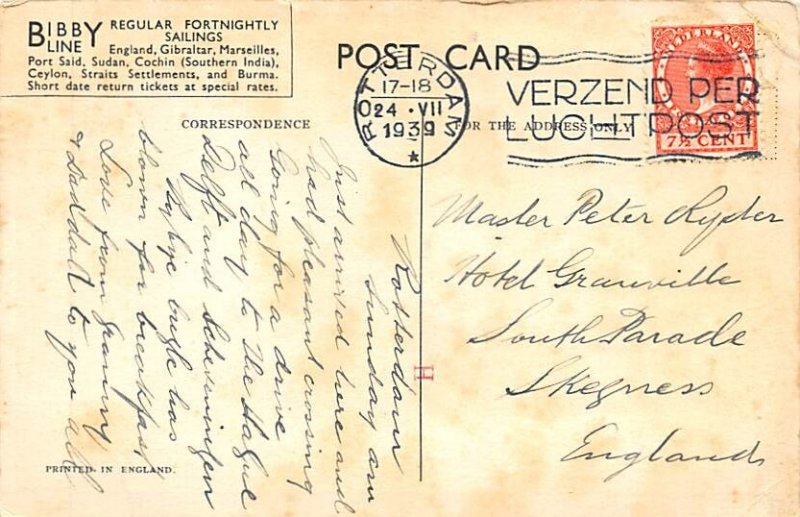 BIBBY LINE
REGULAR FORTNIGHTLY
SAILINGS
England, Gibraltar, Marseilles,
Port Said, Sudan, Cochin (Southern India),
Ceylon, Straits Settlements, and Burma.
Short date return tickets at special rates.
POST CARD
ROTTERDAM
17-18
24 · VII
1939
VERZEND PER
LUCHTPOST
NEDERLAND
7½ CENT
CORRESPONDENCE
FOR THE ADDRESS ONLY
Rotterdam
Sunday am
Just arrived here and
had pleasant crossing
Going for a drive
all day to The Hague
Delft and Scheveningen
Bye bye bugle has
blown for breakfast
Love from Granny
& Daddalt to you all
Master Peter Ryder
Hotel Granville
South Parade
Skegness
England
H
PRINTED IN ENGLAND.